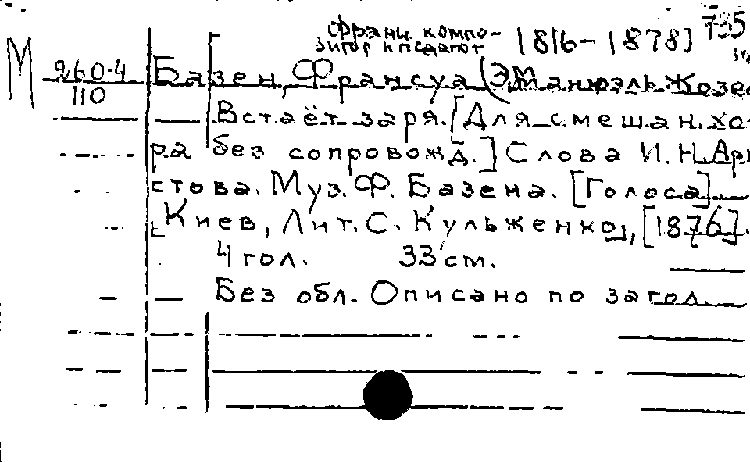 франц. компо-
зитор и педагог 1816-1878] 735
М 260-4 Базен, Франсуа (Эмманюэль-Жозе
110
Встаёт заря. [Для смешан. хо-
ра без сопровожд.] Слова И. Н. Ари
стова. Муз. Ф. Базена. [Голоса].
Киев, Лит. С. Кульженко, [1876].
4 гол. 33 см.
Без обл. Описано по загол.